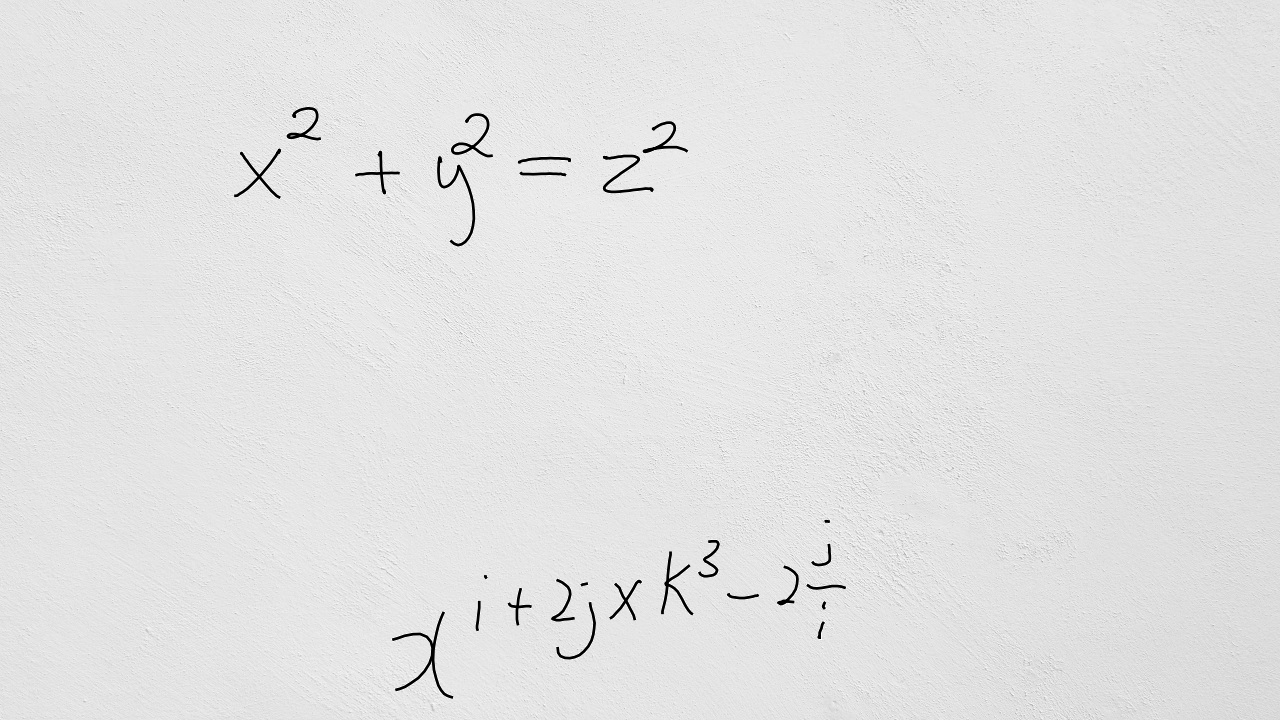 x² + y² = z²
x^{i + 2j × k³ - 2\frac{j}{i}}